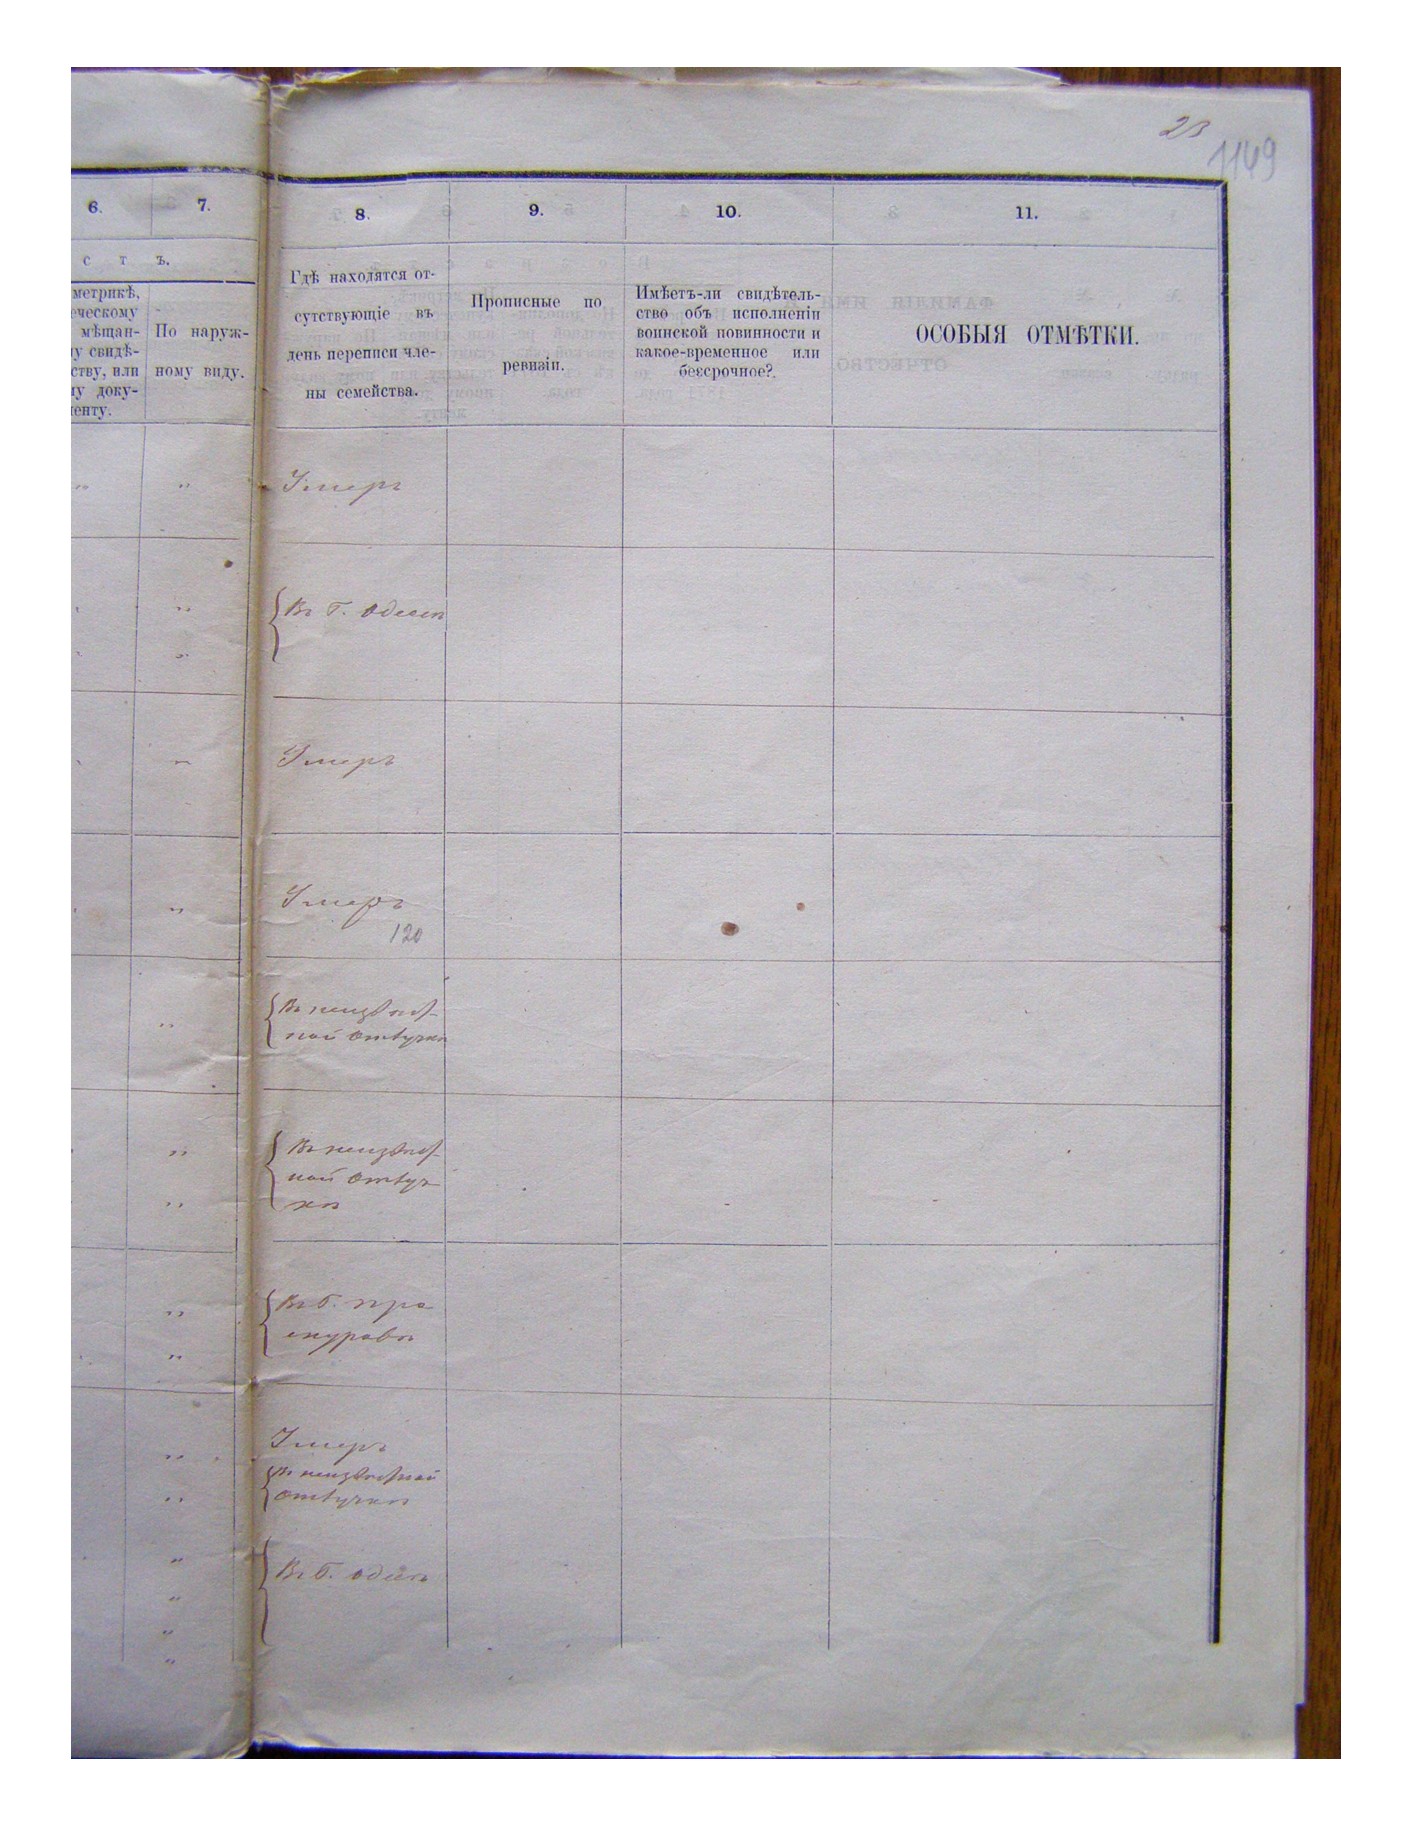 23
1149
6.
7.
8.
9.
10.
11.
с т ъ.
метрикѣ,
еческому
мѣщан-
у свидѣ-
ству, или
му доку-
менту.
По наруж-
ному виду.
Гдѣ находятся от-
сутствующіе въ
день переписи чле-
ны семейства.
Прописные по
ревизіи.
Имѣетъ-ли свидѣтель-
ство объ исполненіи
воинской повинности и
какое-временное или
безсрочное?
ОСОБЫЯ ОТМѢТКИ.
Умеръ
Въ Г. Одессѣ
Умеръ
Умеръ
120
Въ неизвѣст-
ной отлучкѣ
Въ неизвѣст-
ной отлуч-
кѣ
Въ Г. Про
скуровѣ
Умеръ
Въ неизвѣстной
отлучкѣ
Въ Г. Одессѣ